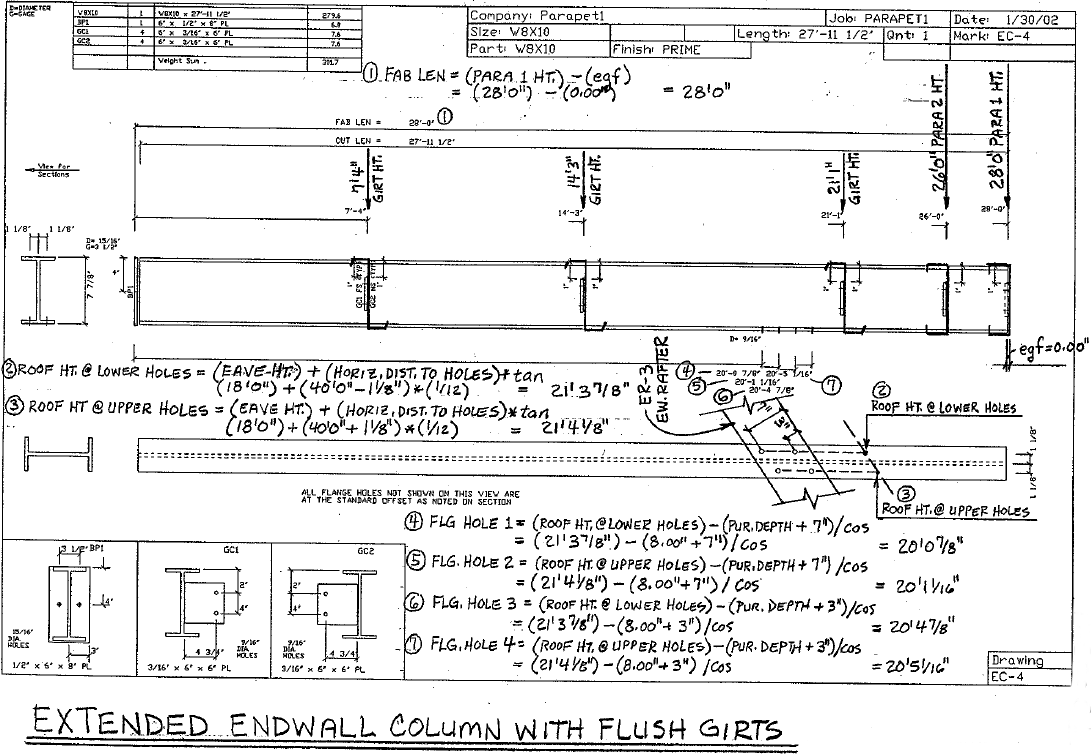 D=DIAMETER
G=GAGE
W8X10 1 W8X10 x 27'-11 1/2" 279.6
BP1 1 6" x 1/2" x 8" PL 6.8
GC1 4 6" x 3/16" x 6" PL 7.6
GC2 4 6" x 3/16" x 6" PL 7.6
Weight Sum . 301.7
Company: Parapet1 Job: PARAPET1 Date: 1/30/02
Size: W8X10 Length: 27'-11 1/2" Qnt: 1 Mark: EC-4
Part: W8X10 Finish: PRIME
① FAB LEN = (PARA 1 HT.) - (egf)
= (28'0") - (0.00") = 28'0"
FAB LEN = 28'-0" ①
CUT LEN = 27'-11 1/2"
View For
Sections
7'4" GIRT HT.
14'3" GIRT HT.
21'1" GIRT HT.
26'0" PARA 2 HT.
28'0" PARA 1 HT.
7'-4" 14'-3" 21'-1" 26'-0" 28'-0"
1 1/8" 1 1/8"
D= 15/16"
G=3 1/2"
4"
7 7/8"
BP1
GC1 FS (TYP)
GC2 NS (TYP)
1" 1" 1" 1" 1" 1" 1" 1"
D= 9/16"
egf=0.00"
② ROOF HT. @ LOWER HOLES = (EAVE HT.) + (HORIZ. DIST. TO HOLES)*tan
(18'0") + (40'0"-1 1/8")*(1/12) = 21'3 7/8"
③ ROOF HT @ UPPER HOLES = (EAVE HT.) + (HORIZ. DIST. TO HOLES)*tan
(18'0") + (40'0"+ 1 1/8")*(1/12) = 21'4 1/8"
ER-3
EW. RAFTER
④ 20'-0 7/8" 20'-5 1/16" ⑦
⑤ 20'-1 1/16"
⑥ 20'-4 7/8"
7"
3"
②
ROOF HT. @ LOWER HOLES
1 1/8"
1 1/8"
③
ROOF HT. @ UPPER HOLES
ALL FLANGE HOLES NOT SHOWN ON THIS VIEW ARE
AT THE STANDARD OFFSET AS NOTED ON SECTION
④ FLG HOLE 1 = (ROOF HT. @ LOWER HOLES) - (PUR. DEPTH + 7")/cos
= (21'3 7/8") - (8.00" + 7")/cos = 20'0 7/8"
⑤ FLG. HOLE 2 = (ROOF HT. @ UPPER HOLES) - (PUR. DEPTH + 7")/cos
= (21'4 1/8") - (8.00"+7")/cos = 20'1 1/16"
⑥ FLG. HOLE 3 = (ROOF HT. @ LOWER HOLES) - (PUR. DEPTH + 3")/cos
= (21'3 7/8") - (8.00"+ 3")/cos = 20'4 7/8"
⑦ FLG. HOLE 4 = (ROOF HT. @ UPPER HOLES) - (PUR. DEPTH + 3")/cos
= (21'4 1/8") - (8.00"+3")/cos = 20'5 1/16"
3 1/2" BP1
4"
15/16"
DIA.
HOLES
3"
1/2" x 6" x 8" PL
GC1
2"
4"
4 3/4"
9/16"
DIA.
HOLES
3/16" x 6" x 6" PL
GC2
2"
4"
9/16"
DIA.
HOLES
4 3/4"
3/16" x 6" x 6" PL
Drawing
EC-4
EXTENDED ENDWALL COLUMN WITH FLUSH GIRTS